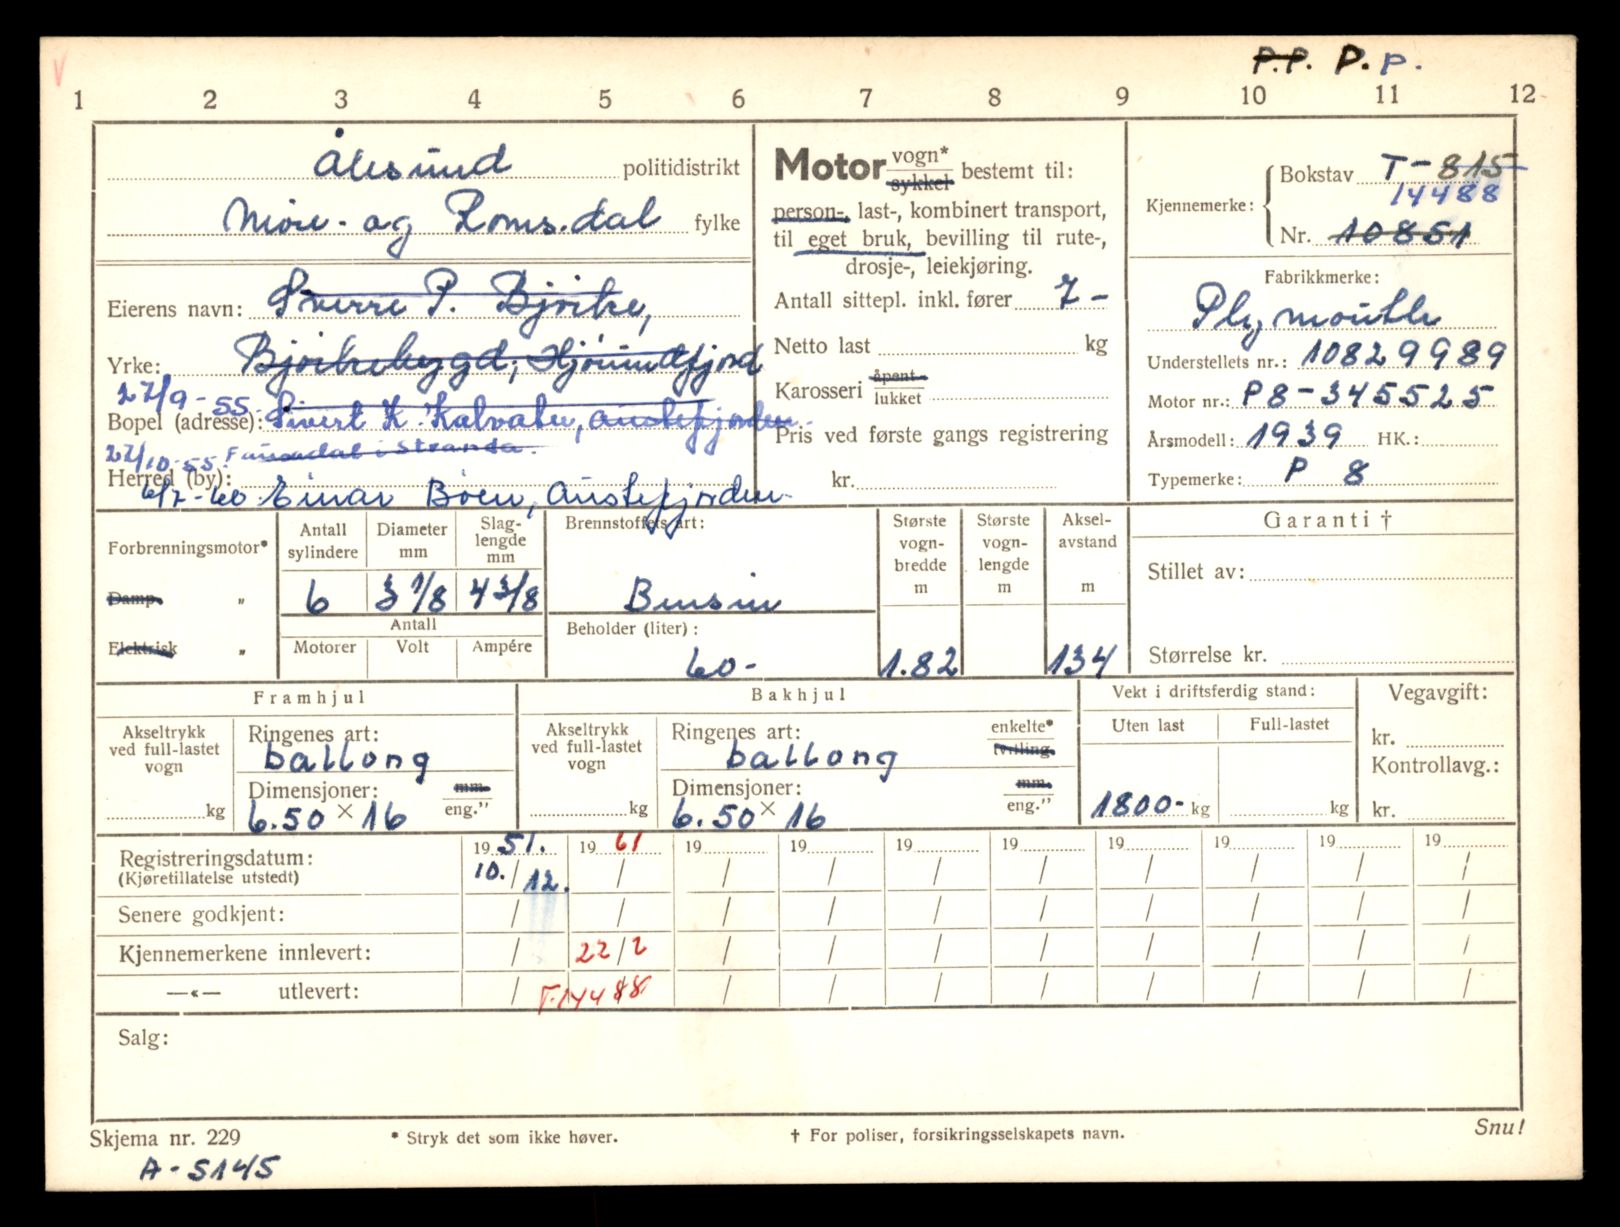 V
P.P. P. P.
1 2 3 4 5 6 7 8 9 10 11 12
Ålesund politidistrikt
Møre- og Romsdal fylke
Eierens navn: Sverre P. Bjørke,
Yrke: Bjørkebygd, Hjørundfjord
27/9-55.
Bopel (adresse): Sivert K. Kalvatn, Austefjorden.
22/10-55.
Herred (by):
6/7-60 Einar Bøen, Austefjorden
Motor vogn* sykkel bestemt til:
person-, last-, kombinert transport,
til eget bruk, bevilling til rute-,
drosje-, leiekjøring.
Antall sittepl. inkl. fører 7-
Netto last kg
Karosseri åpent lukket
Pris ved første gangs registrering
kr.
Kjennemerke: Bokstav T-815
14488
Nr. 10851
Fabrikkmerke:
Plymouth
Understellets nr.: 10829989
Motor nr.: P8-345525
Årsmodell: 1939 HK.:
Typemerke: P 8
Forbrenningsmotor* Antall sylindere Diameter mm Slaglengde mm
Damp. " 6 3 1/8 4 3/8
Elektrisk " Antall
Motorer Volt Ampére
Brennstoffets art:
Bensin
Beholder (liter):
60-
Største vognbredde m Største vognlengde m Akselavstand m
1.82 134
Garanti †
Stillet av:
Størrelse kr.
Framhjul Bakhjul Vekt i driftsferdig stand: Vegavgift:
Akseltrykk ved full-lastet vogn kg
Ringenes art:
ballong
Dimensjoner: mm. eng."
6.50 × 16
Akseltrykk ved full-lastet vogn kg
Ringenes art: enkelte* tvilling.
ballong
Dimensjoner: mm. eng."
6.50 × 16
Uten last Full-lastet
1800- kg kg
kr.
Kontrollavg.:
kr.
19 51. 19 61 19 19 19 19 19 19 19 19
Registreringsdatum: 10./12. / / / / / / / / /
(Kjøretillatelse utstedt)
Senere godkjent: / / / / / / / / / /
Kjennemerkene innlevert: / 22/2 / / / / / / / /
—«— utlevert: / T.14488 / / / / / / / /
Salg:
Skjema nr. 229 * Stryk det som ikke høver. † For poliser, forsikringsselskapets navn. Snu!
A-5145